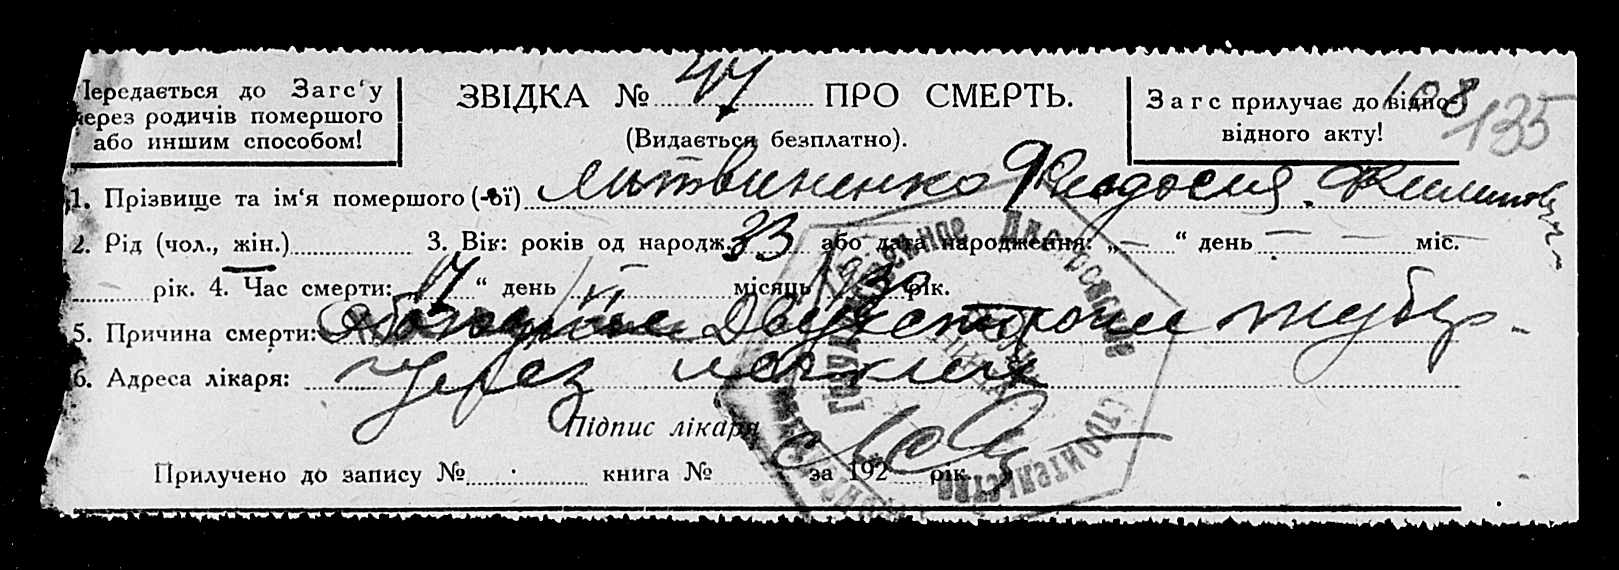 Передається до Загс‘у
через родичів помершого
або иншим способом!
ЗВІДКА № 44 ПРО СМЕРТЬ.
(Видається безплатно).
Загс прилучає до відпо-
відного акту!
108
135
1. Прізвище та ім‘я помершого (-ої) Литвиненко Феодосия
2. Рід (чол., жін.) 3. Вік: років од народж. 33 або дата народження: „— “ день — — міс. —
рік. 4. Час смерти: “ день VI місяць 30 рік.
5. Причина смерти: Двухсторонни тубер-
6. Адреса лікаря: через легких
Підпис лікаря
Прилучено до запису № книга № за 192 рік.